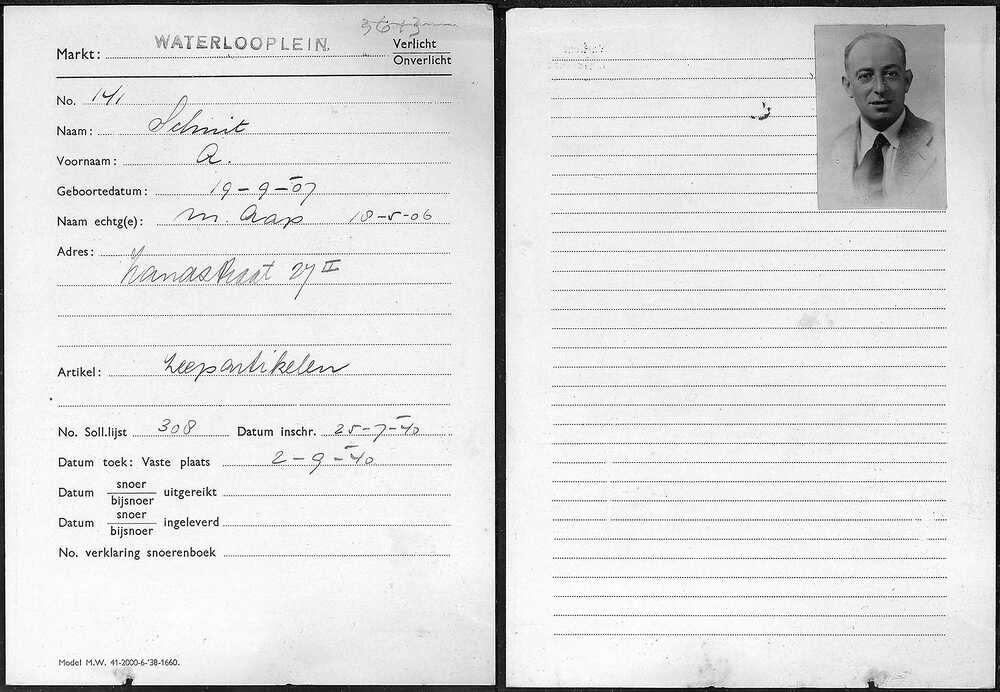 Markt: WATERLOOPLEIN. Verlicht
Onverlicht
No. 141
Naam: Schmit
Voornaam: A.
Geboortedatum: 19-9-07
Naam echtg(e): M. Aap 18-5-06
Adres:
Zanastraat 27 II
Artikel: Zeepartikelen
No. Soll.lijst 308 Datum inschr. 25-7-40
Datum toek: Vaste plaats 2-9-40
Datum snoer
bijsnoer uitgereikt
Datum snoer
bijsnoer ingeleverd
No. verklaring snoerenboek
Model M.W. 41-2000-6-'38-1660.